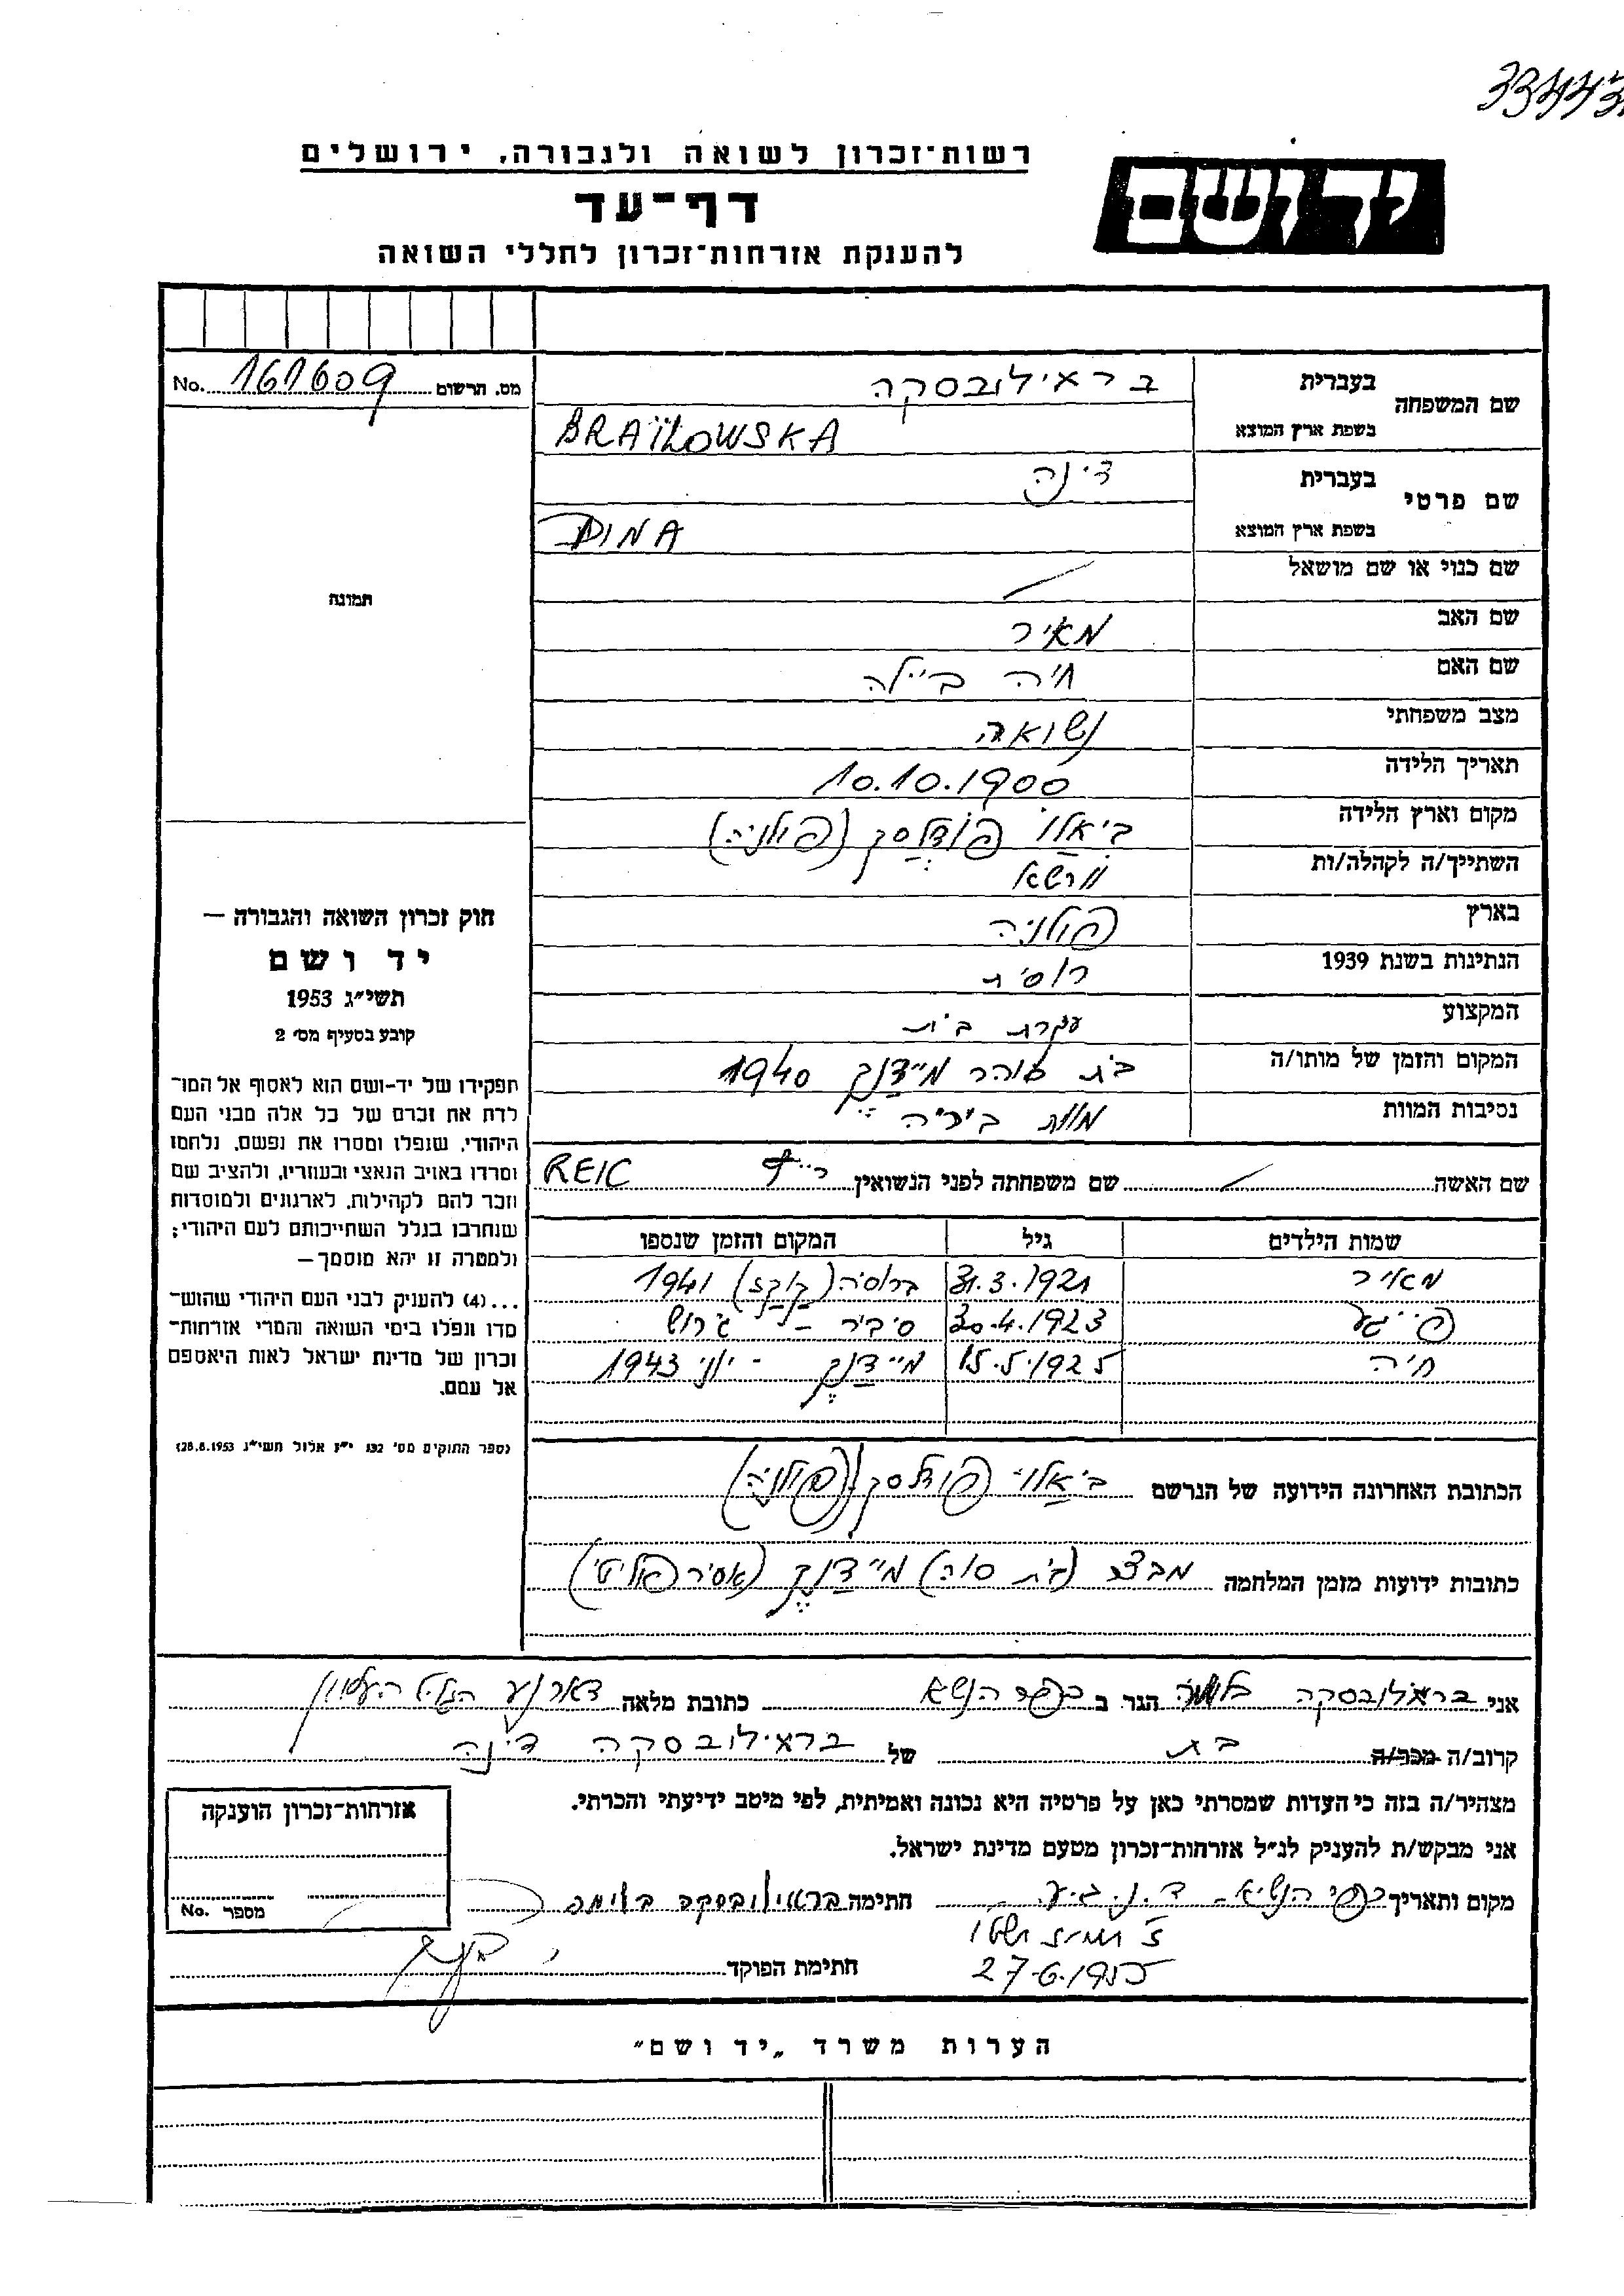 רשות־זכרון לשואה ולגבורה, ירושלים
דף־עד
להענקת אזרחות־זכרון לחללי השואה
יד ושם
מס. הרשום 161609 No.
שם המשפחה
בעברית
בראילובסקה
בשפת ארץ המוצא
BRAÏLOWSKA
שם פרטי
בעברית
דינה
בשפת ארץ המוצא
DINA
שם כנוי או שם מושאל
שם האב
מאיר
שם האם
חיה ביילה
מצב משפחתי
נשואה
תאריך הלידה
10.10.1900
מקום וארץ הלידה
ביאלו פודלסק (פולניה)
השתייך/ה לקהלה/ות
ורשא
בארץ
פולניה
הנתינות בשנת 1939
רוסית
המקצוע
עקרת בית
המקום והזמן של מותו/ה
בית סוהר מיידנק 1940
נסיבות המוות
מוות ביריה
שם האשה שם משפחתה לפני הנשואין REIC
שמות הילדים גיל המקום והזמן שנספו
מאיר 31.3.1921 ברוסיה (קוקז) 1941
פייגע 30.4.1923 סיביר - גירוש
חיה 15.5.1925 מיידנק - יוני 1943
הכתובת האחרונה הידועה של הנרשם ביאלו פודלסק (פולניה)
כתובות ידועות מזמן המלחמה מבצר (בית סוהר) מיידנק (אסיר פוליטי)
אני בראילובסקה בלומה הגר ב כפר הנשיא כתובת מלאה דאר נע הגליל העליון
קרוב/ה מכר/ה בת של בראילובסקה דינה
מצהיר/ה בזה כי העדות שמסרתי כאן על פרטיה היא נכונה ואמיתית, לפי מיטב ידיעתי והכרתי.
אני מבקש/ת להעניק לנ״ל אזרחות־זכרון מטעם מדינת ישראל.
מקום ותאריך כפר הנשיא ד.נ. ג.ע. חתימה בראילובסקה בלומה
27.6.1955
חתימת הפוקד
תמונה
חוק זכרון השואה והגבורה —
יד ושם
תשי״ג 1953
קובע בסעיף מס׳ 2
תפקידו של יד-ושם הוא לאסוף אל המו־
לדת את זכרם של כל אלה מבני העם
היהודי, שנפלו ומסרו את נפשם, נלחמו
ומרדו באויב הנאצי ובעוזריו, ולהציב שם
וזכר להם לקהילות, לארגונים ולמוסדות
שנחרבו בגלל השתייכותם לעם היהודי;
ולמטרה זו יהא מוסמך—
...(4) להעניק לבני העם היהודי שהוש־
מדו ונפלו בימי השואה והמרי אזרחות־
זכרון של מדינת ישראל לאות היאספם
אל עמם.
(ספר החוקים מס׳ 132 י״ז אלול תשי״ג 28.8.1953)
אזרחות־זכרון הוענקה
מספר No.
הערות משרד „יד ושם״